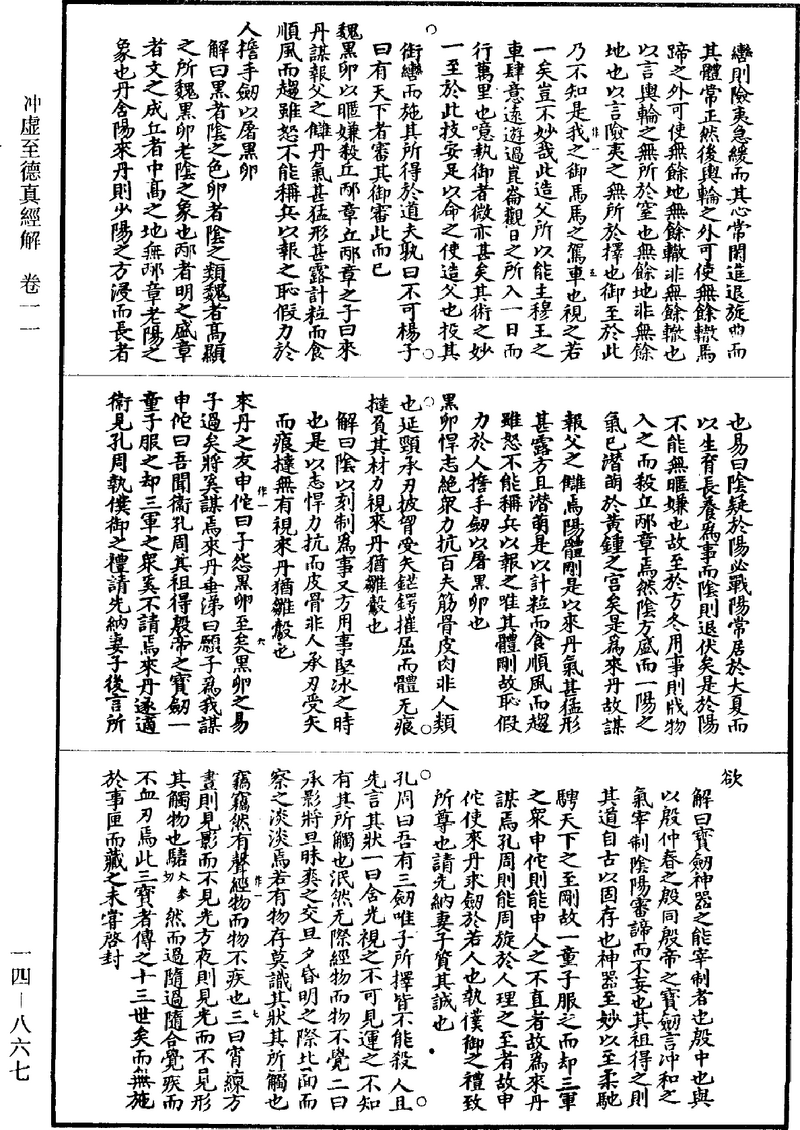 冲虛至德真經解　卷一一
一四—八六七
轡則險夷急緩而其心常閑進退旋曲而
其體常正然後輿輪之外可使無餘轍馬
蹄之外可使無餘地無餘轍非無餘轍也
以言輿輪之無所於窒也無餘地非無餘
地也以言險夷之無所於擇也御至於此
乃不知是我之御馬馬之駕車也視之若
一矣豈不妙哉此造父所以能主穆王之
車肆意遠遊過崑崙觀日之所入一日而
行萬里也噫執御者微亦甚矣其術之妙
一至於此技安足以命之使造父也投其
銜轡而施其所得於道夫孰曰不可楊子
曰有天下者審其御審此而已
魏黑卯以暱嫌殺丘邴章丘邴章之子曰來
丹謀報父之讎丹氣甚猛形甚露計粒而食
順風而趨雖怒不能稱兵以報之恥假力於
人擔手劒以屠黑卯
解曰黑者陰之色卯者陰之類魏者高顯
之所魏黑卯老陰之象也邴者明之盛章
者文之成丘者中高之地無邴章老陽之
象也丹含陽來丹則少陽之方浸而長者
也易曰陰疑於陽必戰陽常居於大夏而
以生育長養爲事而陰則退伏矣是於陽
不能無暱嫌也故至於方冬用事則戕物
入之而殺丘邴章焉然陰方盛而一陽之
氣已潛萌於黃鍾之宮矣是爲來丹故謀
報父之讎焉陽體剛是以來丹氣甚猛形
甚露方且潛萌是以計粒而食順風而趨
雖怒不能稱兵以報之唯其體剛故恥假
力於人擔手劒以屠黑卯也
黑卯悍志絕衆力抗百夫筋骨皮肉非人類
也延頸承刃披胷受矢鋩鍔摧屈而體无痕
撻負其材力視來丹猶雛鷇也
解曰陰以刻制爲事又方用事堅冰之時
也是以志悍力抗而皮骨非人承刃受矢
而痕撻無有視來丹猶雛鷇也
來丹之友申佗作一曰子怨黑卯至矣黑卯之易
子過矣將奚謀焉來丹垂涕曰願子爲我謀
申佗曰吾聞衞孔周其祖得殷帝之寶劒一
童子服之却三軍之衆奚不請焉來丹遂適
衞見孔周執僕御之禮請先納妻子後言所
欲
解曰寶劒神器之能宰制者也殷中也與
以殷仲春之殷同殷帝之寶劒言冲和之
氣宰制陰陽審諦而不妄也其祖得之則
其道自古以固存也神器至妙以至柔馳
騁天下之至剛故一童子服之而却三軍
之衆申佗則能申人之不直者故為來丹
謀焉孔周則能周旋於人理之至者故申
佗使來丹求劒於若人也執僕御之禮致
所尊也請先納妻子質其誠也
孔周曰吾有三劒唯子所擇皆不能殺人且
先言其狀一曰含光視之不可見運之不知
有其所觸也泯然无際經物而物不覺二曰
承影將旦昧爽之交旦夕昏明之際北面而
察之淡淡焉若有物存莫識其狀其所觸也
竊竊然有聲經物而物不疾也三曰宵練方
晝則見影而不見光方夜則見光而不見形
其觸物也騞然而過隨過隨合覺疾而
不血刃焉此三寶者傳之十三世矣而無施
於事匣而藏之未嘗啓封